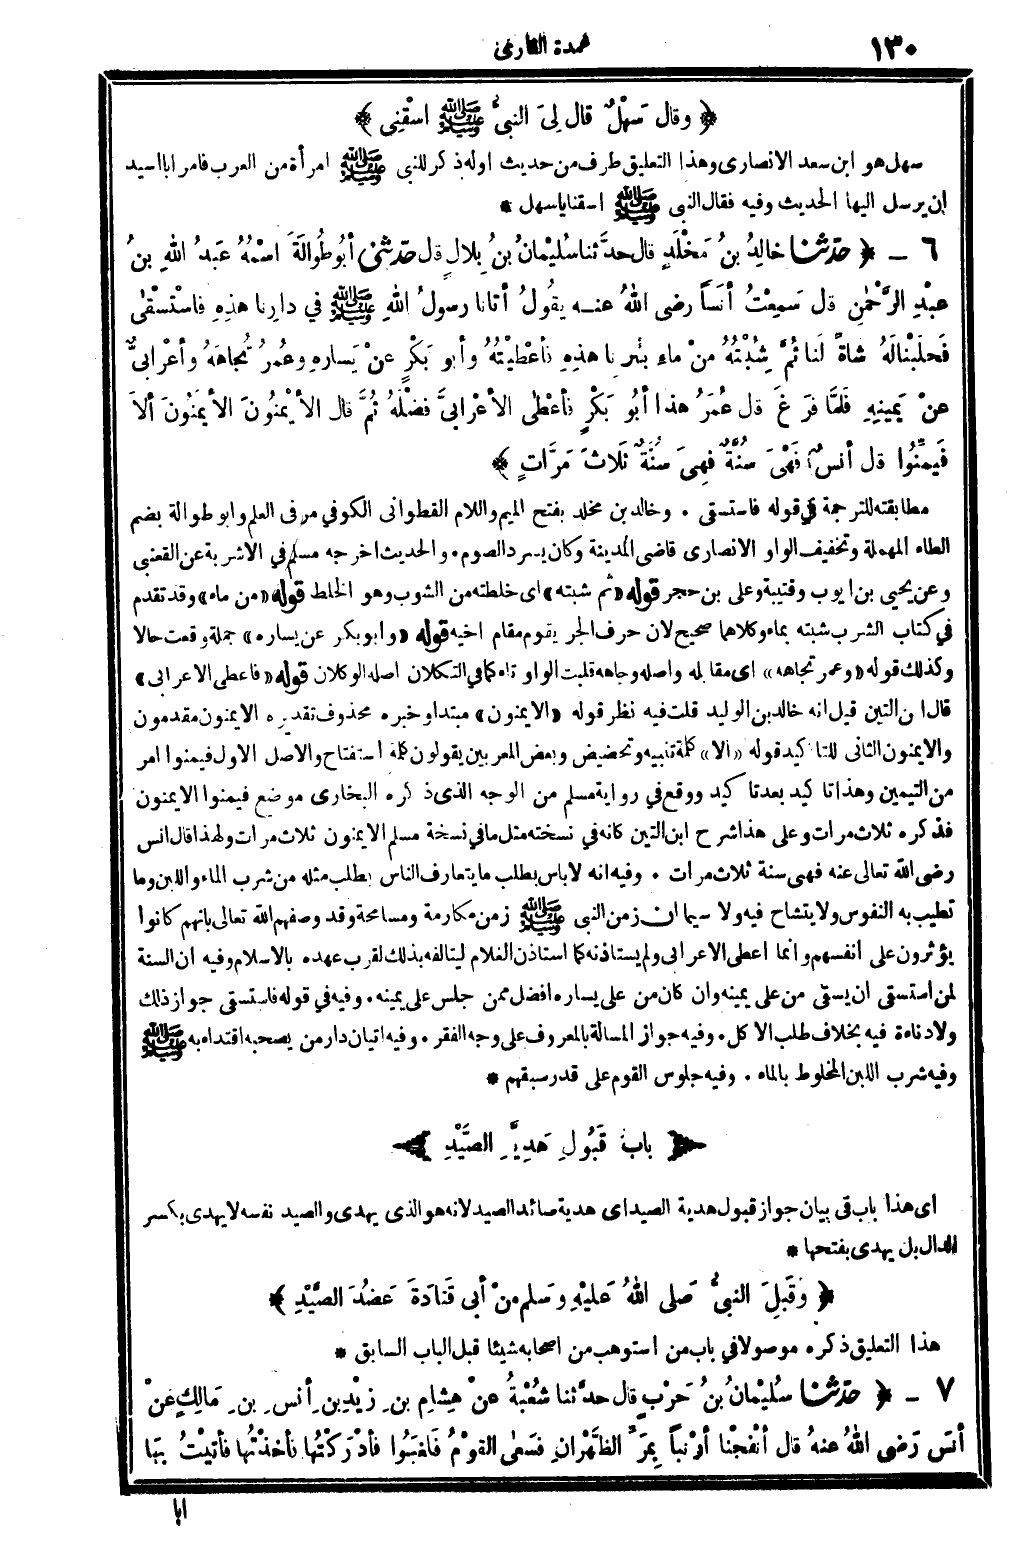 ١٣٠
عمدة القارئ
﴿ وقال سَهْلٌ قال لِىَ النبىُّ ﷺ اسْقِنِى ﴾
سهل هو ابن سعد الانصارى وهذا التعليق طرف من حديث اوله ذكر للنبى ﷺ امرأة من العرب فامر ابا اسيد
ان يرسل اليها الحديث وفيه فقال النبى ﷺ اسقنا ياسهل *
٦ ـ ﴿ حَدَّثَنَا خالِدُ بنُ مَخْلَدٍ قال حدَّثنا سُلَيْمانُ بنُ بِلالٍ قال حدَّثنى أبُو طُوالَةَ اسْمُهُ عَبدُ اللهِ بنُ
عبْدِ الرَّحْمٰنِ قال سَمِعْتُ أنَساً رضى اللهُ عنـه يقُولُ أتانا رسولُ اللهِ ﷺ في دارِنا هذِهِ فاسْتَسْقَى
فَحلَبْنا لَهُ شاةً لَنا ثُمَّ شِبْتُهُ مِنْ ماءِ بِئْرِنا هذِهِ فأعْطَيْتُهُ وأبو بَكْرٍ عنْ يَسارِهِ وعُمرُ تُجاهَهُ وأعْرابىٌّ
عنْ يَمِينِهِ فَلمَّا فرَغَ قال عُمَرُ هذا أبُو بَكْرٍ فأعْطَى الأعْرابىَّ فضْلَهُ ثُمَّ قال الأيْمَنُونَ الأيمَنُونَ ألاَ
فَيمِّنُوا قال أنسٌ فَهْىَ سُنَّةٌ فهِىَ سُنَّةٌ ثَلاثَ مَرَّاتٍ ﴾
مطابقته للترجمة في قوله فاستسقى . وخالد بن مخلد بفتح الميم واللام القطوانى الكوفي مر فى العلم وابو طوالة بضم
الطاء المهملة وتخفيف الواو الانصارى قاضى المدينة وكان يسرد الصوم . والحديث اخرجه مسلم في الاشربة عن القعنبى
وعن يحيى بن ايوب وقتيبة وعلى بن حجر قوله «ثم شبته» اى خلطته من الشوب وهو الخلط قوله «من ماء» وقد تقدم
في كتاب الشرب شبته بماء وكلاهما صحيح لان حرف الجر يقوم مقام اخيه قوله «وابو بكر عن يساره» جملة وقعت حالا
وكذلك قوله «وعمر تجاهه» اى مقابله واصله وجاهه قلبت الواو تاء كما في التكلان اصله الوكلان قوله «فاعطى الاعرابى»
قال ابن التين قيل انه خالد بن الوليد قلت فيه نظر قوله «الايمنون» مبتدا وخبره محذوف تقديره الايمنون مقدمون
والايمنون الثانى للتاكيد قوله «الا» كلمة تنبيه وتحضيض وبعض المعربين يقولون كلمة استفتاح والاصل الاول فيمنوا امر
من التيمين وهذا تاكيد بعد تاكيد ووقع في رواية مسلم من الوجه الذى ذكره البخارى موضع فيمنوا الايمنون
فذكره ثلاث مرات وعلى هذا شرح ابن التين كانه في نسخته مثل ما في نسخة مسلم الايمنون ثلاث مرات ولهذا قال انس
رضى الله تعالى عنه فهى سنة ثلاث مرات . وفيه انه لاباس بطلب ما يتعارف الناس بطلب مثله من شرب الماء واللبن وما
تطيب به النفوس ولا يتشاح فيه ولا سيما ان زمن النبى ﷺ زمن مكارمة ومسامحة وقد وصفهم الله تعالى بانهم كانوا
يؤثرون على انفسهم وانما اعطى الاعرابى ولم يستاذنه كما استاذن الغلام ليتالفه بذلك لقرب عهده بالاسلام وفيه ان السنة
لمن استسقى ان يسقى من على يمينه وان كان من على يساره افضل ممن جلس على يمينه . وفيه في قوله فاستسقى جواز ذلك
ولا دناءة فيه بخلاف طلب الاكل . وفيه جواز المسالة بالمعروف على وجه الفقر . وفيه اتيان دار من يصحبه اقتداء به ﷺ
وفيه شرب اللبن المخلوط بالماء . وفيه جلوس القوم على قدر سبقهم *
باب قَبُولِ هَدِيَّةِ الصَّيْدِ
اى هذا باب في بيان جواز قبول هدية الصيد اى هدية صائد الصيد لانه هو الذى يهدى والصيد نفسه لا يهدى بكسر
الدال بل يهدى بفتحها *
﴿ وَقَبِلَ النبىُّ صَلى اللهُ عَليْهِ وَسَلم مِنْ أبى قَتادَةَ عَضُدَ الصَّيْدِ ﴾
هذا التعليق ذكره موصولا في باب من استوهب من اصحابه شيئا قبل الباب السابق *
٧ ـ ﴿ حَدَّثَنَا سُلَيْمانُ بنُ حَرْبٍ قال حدَّثنا شُعْبَةُ عنْ هِشامِ بنِ زيْدِ بنِ أنسِ بنِ مَالِكٍ عنْ
أنَسٍ رَضى اللهُ عنهُ قال أنْفَجْنا أرْنَباً بِمَرِّ الظَّهْرانِ فسَعٰى القوْمُ فَلغَبُوا فأدْرَكْتُها فأخذْتُها فأتيْتُ بِهَا
ابا